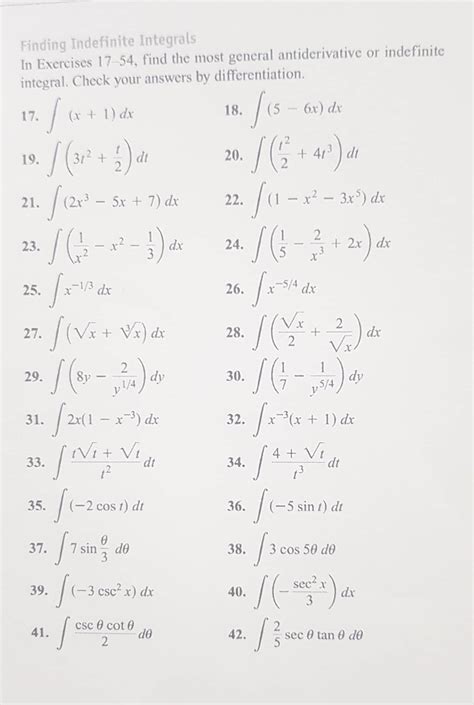 Finding Indefinite Integrals
In Exercises 17–54, find the most general antiderivative or indefinite
integral. Check your answers by differentiation.
17. ∫ (x + 1) dx 18. ∫ (5 − 6x) dx
19. ∫ (3t² + t/2) dt 20. ∫ (t²/2 + 4t³) dt
21. ∫ (2x³ − 5x + 7) dx 22. ∫ (1 − x² − 3x⁵) dx
23. ∫ (1/x² − x² − 1/3) dx 24. ∫ (1/5 − 2/x³ + 2x) dx
25. ∫ x^(−1/3) dx 26. ∫ x^(−5/4) dx
27. ∫ (√x + ∛x) dx 28. ∫ (√x/2 + 2/√x) dx
29. ∫ (8y − 2/y^(1/4)) dy 30. ∫ (1/7 − 1/y^(5/4)) dy
31. ∫ 2x(1 − x⁻³) dx 32. ∫ x⁻³(x + 1) dx
33. ∫ (t√t + √t)/t² dt 34. ∫ (4 + √t)/t³ dt
35. ∫ (−2 cos t) dt 36. ∫ (−5 sin t) dt
37. ∫ 7 sin θ/3 dθ 38. ∫ 3 cos 5θ dθ
39. ∫ (−3 csc² x) dx 40. ∫ (−sec² x/3) dx
41. ∫ (csc θ cot θ)/2 dθ 42. ∫ 2/5 sec θ tan θ dθ